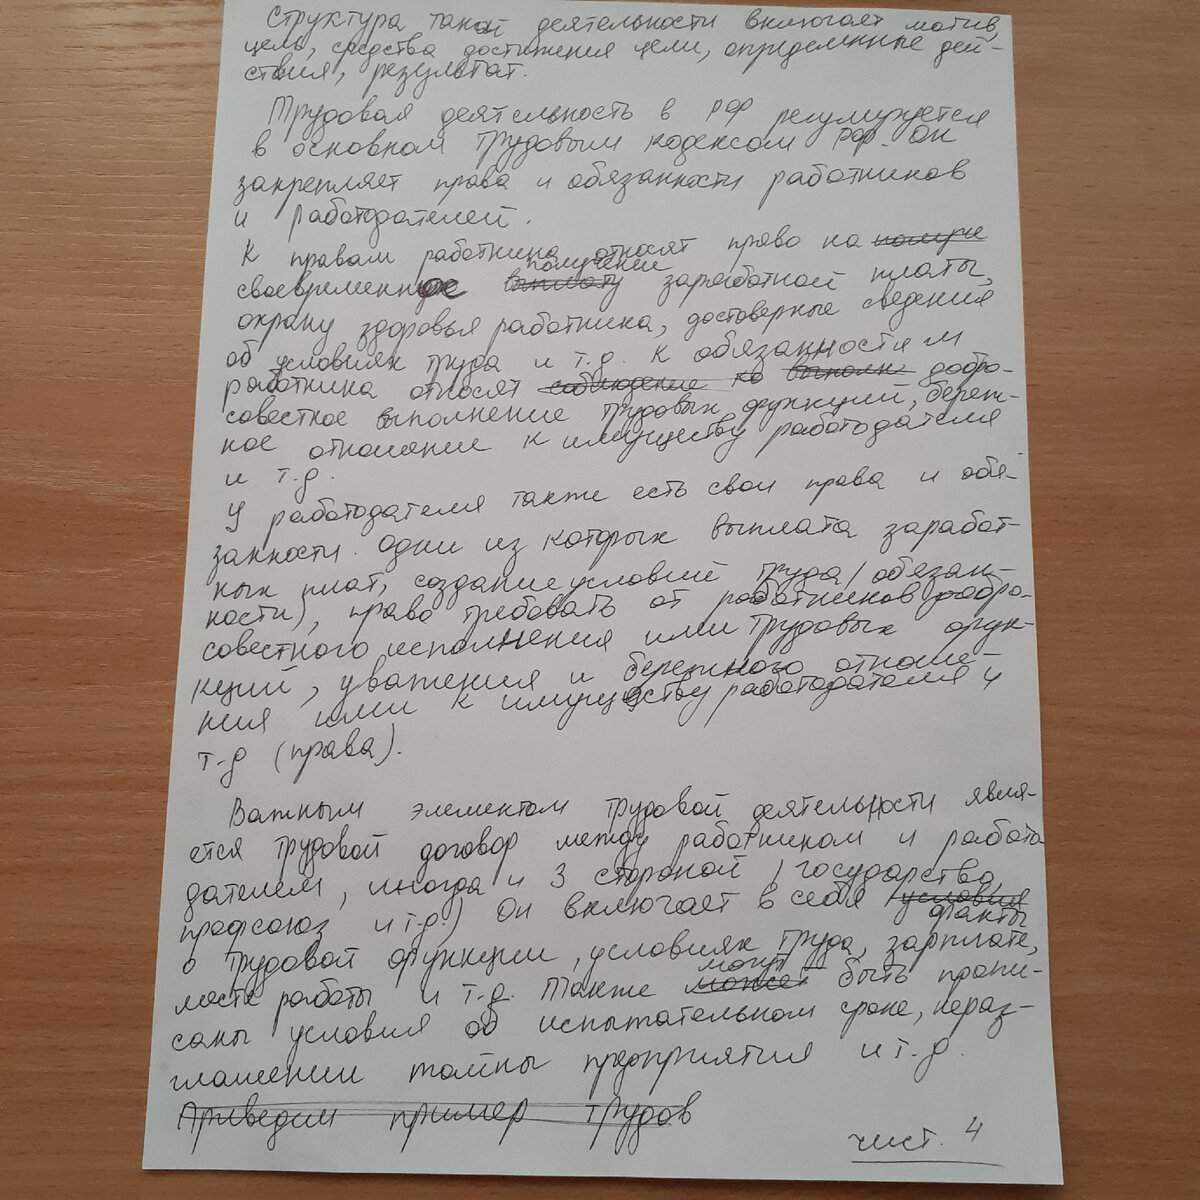 Структура такой деятельности включает мотив,
цель, средства достижения цели, определенные дей-
ствия, результат.
Трудовая деятельность в РФ регулируется
в основном Трудовым кодексом РФ. Он
закрепляет права и обязанности работников
и работодателей.
К правам работника относят право на получе
получение
своевременное выплату заработной платы,
охрану здоровья работника, достоверные сведения
об условиях труда и т.д. К обязанностям
работника относят соблюдение то выполн. добро-
совестное выполнение трудовых функций, береж-
ное отношение к имуществу работодателя
и т.д.
У работодателя также есть свои права и обя-
занности. Одни из которых выплата заработ-
ных плат, создание условий труда (обязан-
ности), право требовать от работников добро-
совестного исполнения ими трудовых фун-
кций, уважения и бережного отноше-
ния ими к имуществу работодателя и
т.д (права).
Важным элементом трудовой деятельности явля-
ется трудовой договор между работником и работо
дателем, иногда и 3 стороной (государство,
профсоюз и т.д.) Он включает в себя условия
факты
о трудовой функции, условиях труда, зарплате,
могут
месте работы и т.д. Также может быть пропи-
саны условия об испытательном сроке, нераз-
глашении тайны предприятия и т.д.
Приведем пример трудов
чист. 4